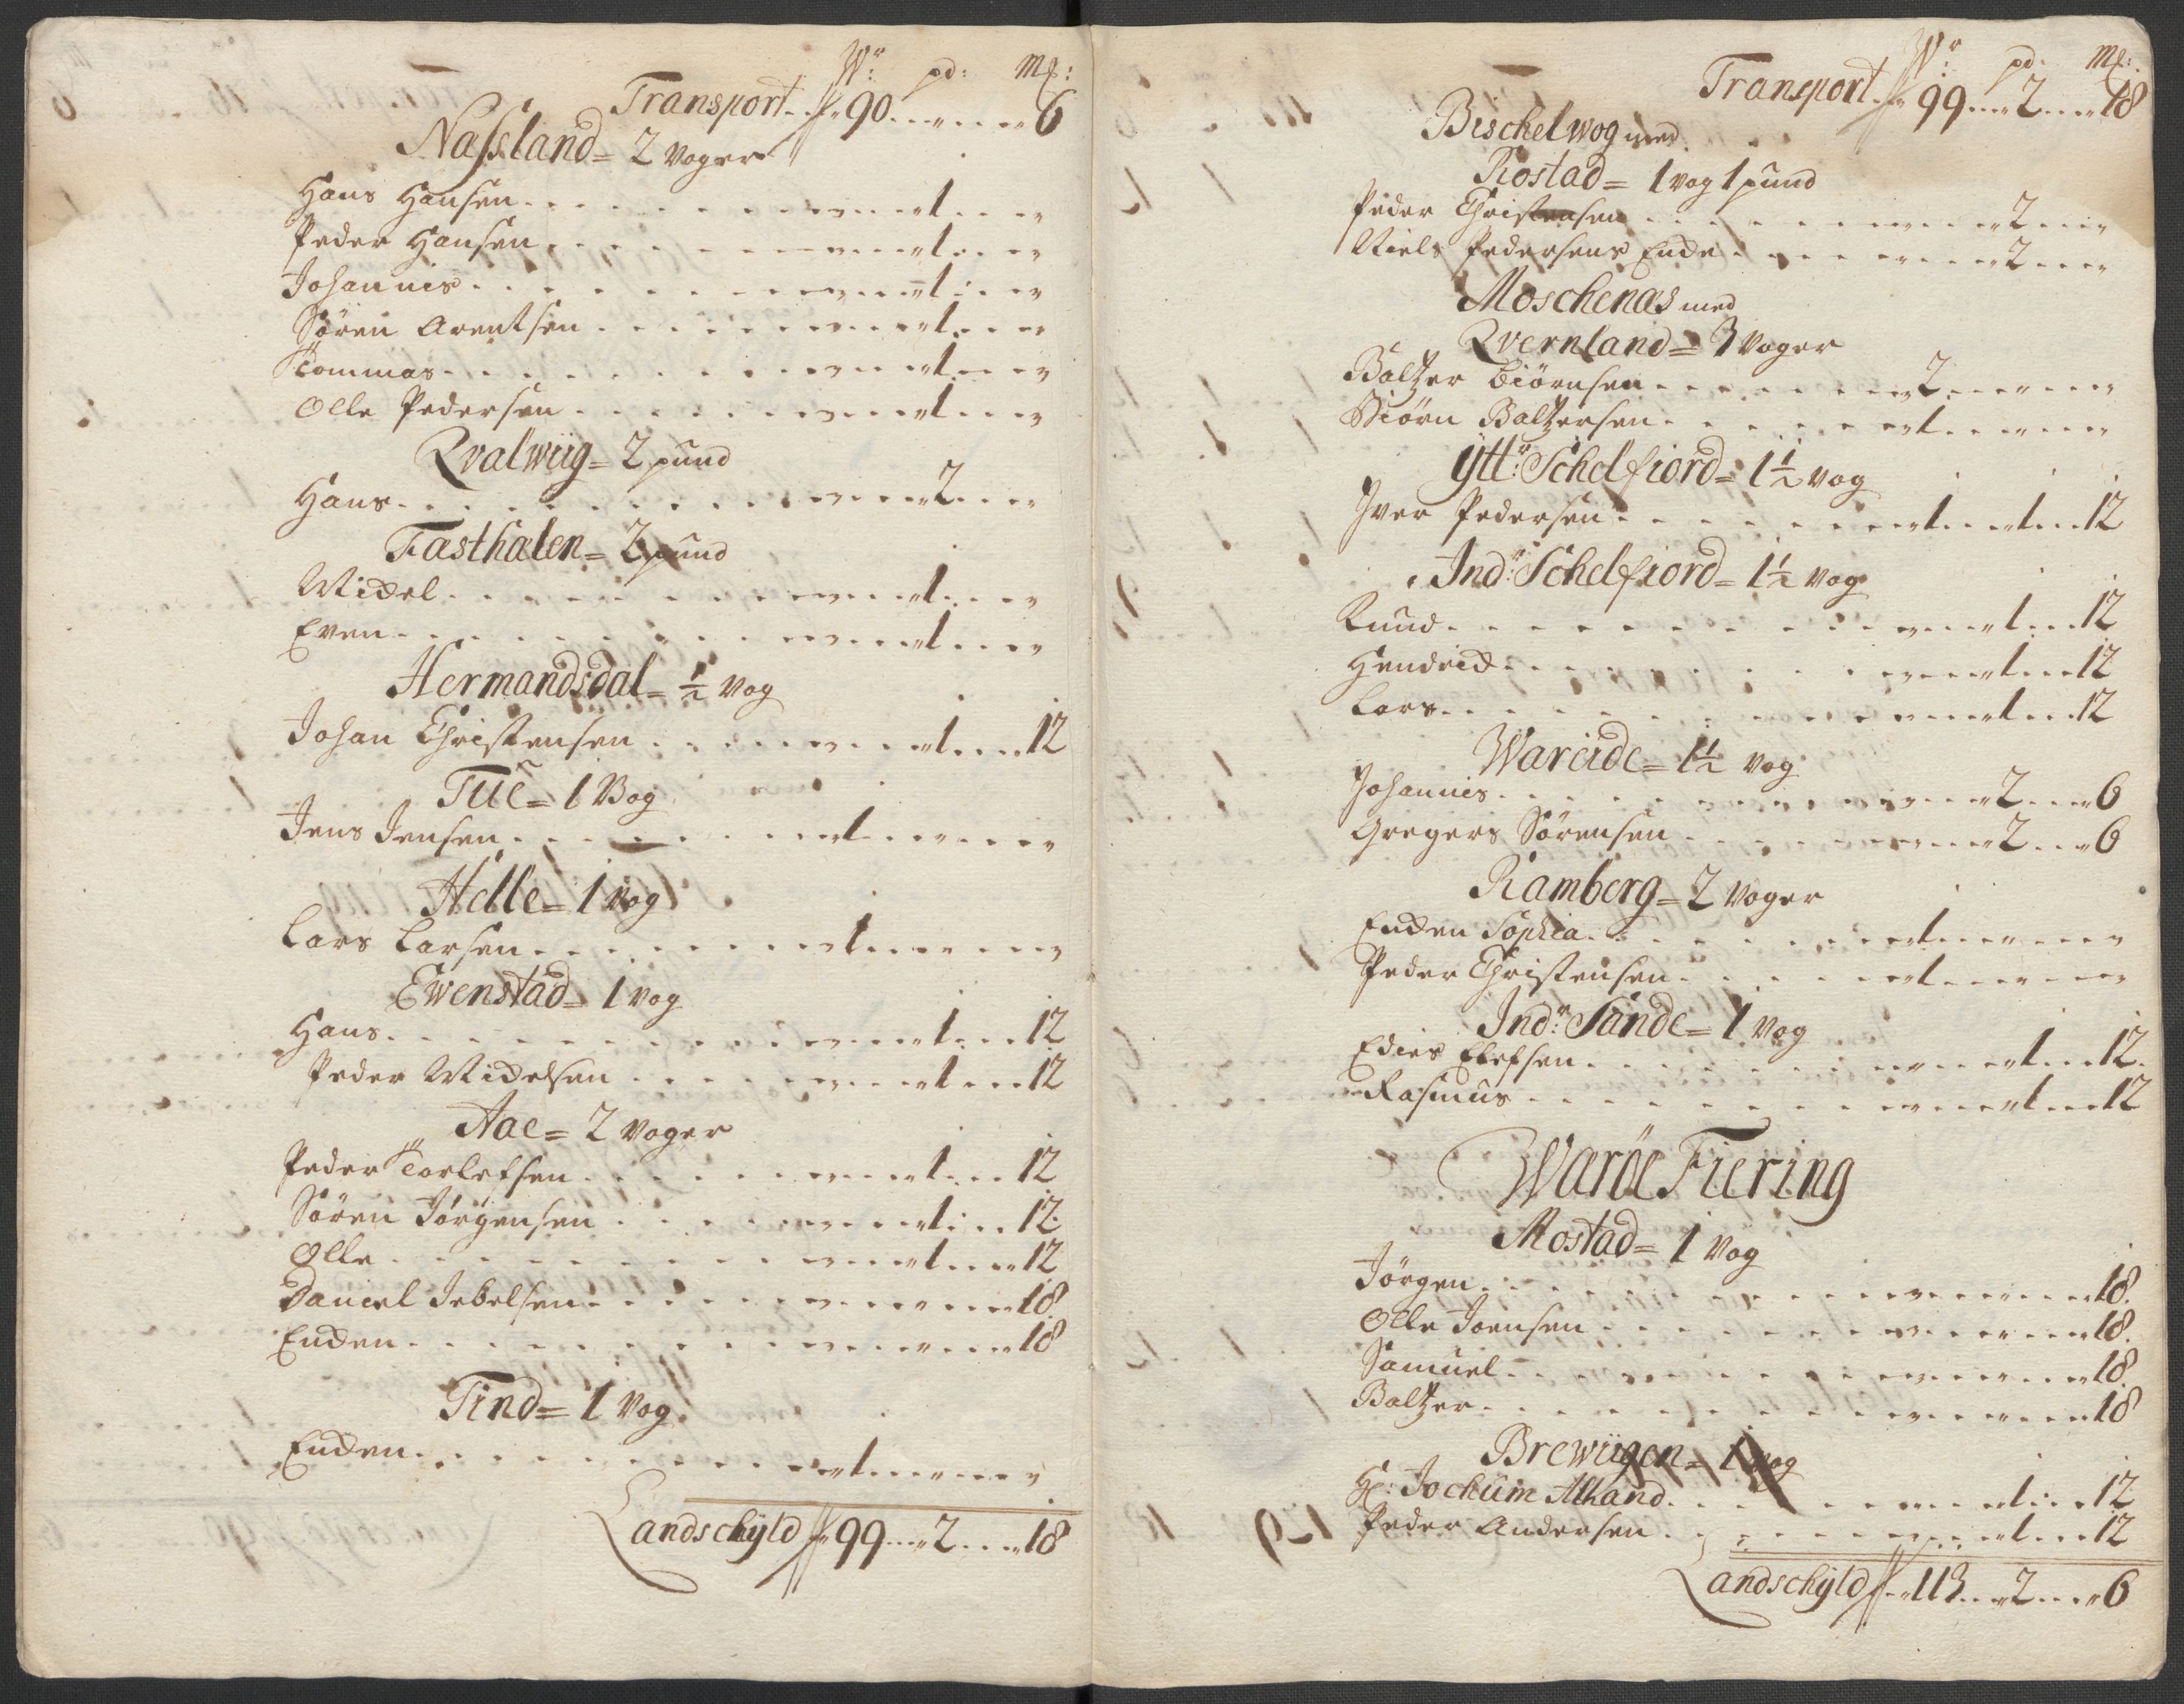 Wr: pd: Mk:
Transport. 90 . . . " . . . 6
Nassland = 2 voger
Hans Hansen . . . 1 . . "
Peder Hansen . . . 1 . . "
Johannis . . . 1 . . "
Sören Arentsen . . . 1 . . "
Tommas . . . 1 . . "
Olle Pedersen . . . 1 . . "
Qvalwiig = 2 pund
Hans . . . 2 . . "
Fasthalen = 2 pund
Michel . . . 1 . . "
Even . . . 1 . . "
Hermandsdal = ½ vog
Johan Christensen . . . 1 . . 12
Tue = 1 Vog
Jens Jensen . . . 1 . . " . . "
Helle = 1 vog
Lars Larsen . . . 1 . . " . . "
Ewenstad = 1 vog
Hans . . . 1 . . 12
Peder Michelsen . . . 1 . . 12
Aae = 2 voger
Peder Torlefsen . . . 1 . . 12
Sören Jörgensen . . . 1 . . 12
Olle . . . 1 . . 12
Daniel Jebelsen . . . 18
Enchen . . . 18
Tind = 1 vog
Enchen . . . 1 . . " . . "
Landschyld 99 . . . 2 . . . 18
Wr: pd: Mk:
Transport 99 . . . 2 . . . 18
Bischelwog med
Rostad = 1 vog 1 pund
Peder Christensen . . . 2 . . "
Niels Pedersens Enche . . . 2 . . "
Moschenas med
Qvernland = 3 voger
Baltzer Biörnsen . . . 2 . . " . . "
Biörn Baltzersen . . . 1 . . " . . "
Ytt:r Schelfiord = 1½ vog
Iver Pedersen . . . 1 . . 1 . . 12
Ind:r Schelfiord = 1½ vog
Knud . . . 1 . . 12
Hendrich . . . 1 . . 12
Lars . . . 1 . . 12
Wareide = 1½ vog
Johannes . . . 2 . . 6
Gregers Sörensen . . . 2 . . 6
Ramberg = 2 voger
Enchen Sophia . . . 1 . . " . . "
Peder Christensen . . . 1 . . " . . "
Ind:r Sunde = 1 vog
Edies Elefsen . . . 1 . . 12
Rasmus . . . 1 . . 12
Waröe Fiering
Mostad = 1 vog
Jörgen . . . 18
Olle Joensen . . . 18
Samuel . . . 18
Baltzer . . . 18
Brewiigen = 1 vog
Hr: Jochum Alhand . . . 1 . . 12
Peder Andersen . . . 1 . . 12
Landschyld 113 . . . 2 . . . 6